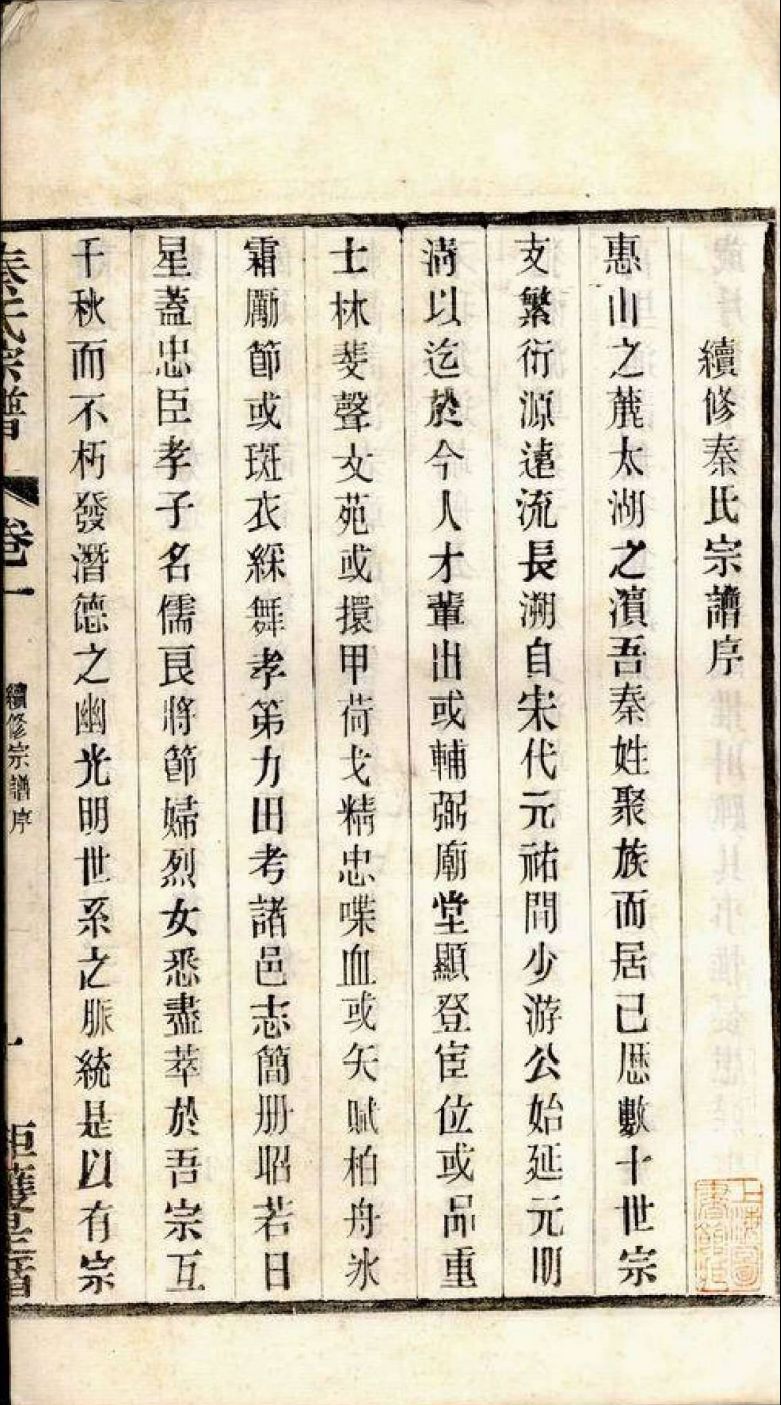 續修秦氏宗譜序
惠山之麓太湖之濱吾秦姓聚族而居已歷數十世宗
支繁衍源遠流長溯自宋代元祐間少游公始延元明
淸以迄於今人才輩出或輔弼廟堂顯登宦位或品重
士林斐聲文苑或擐甲荷戈精忠喋血或矢賦柏舟冰
霜勵節或斑衣綵舞孝弟力田考諸邑志簡册昭若日
星蓋忠臣孝子名儒良將節婦烈女悉盡萃於吾宗互
千秋而不朽發潛德之幽光明世系之脈統是以有宗
秦氏宗譜
卷一
續修宗譜序
一
上海圖書館藏